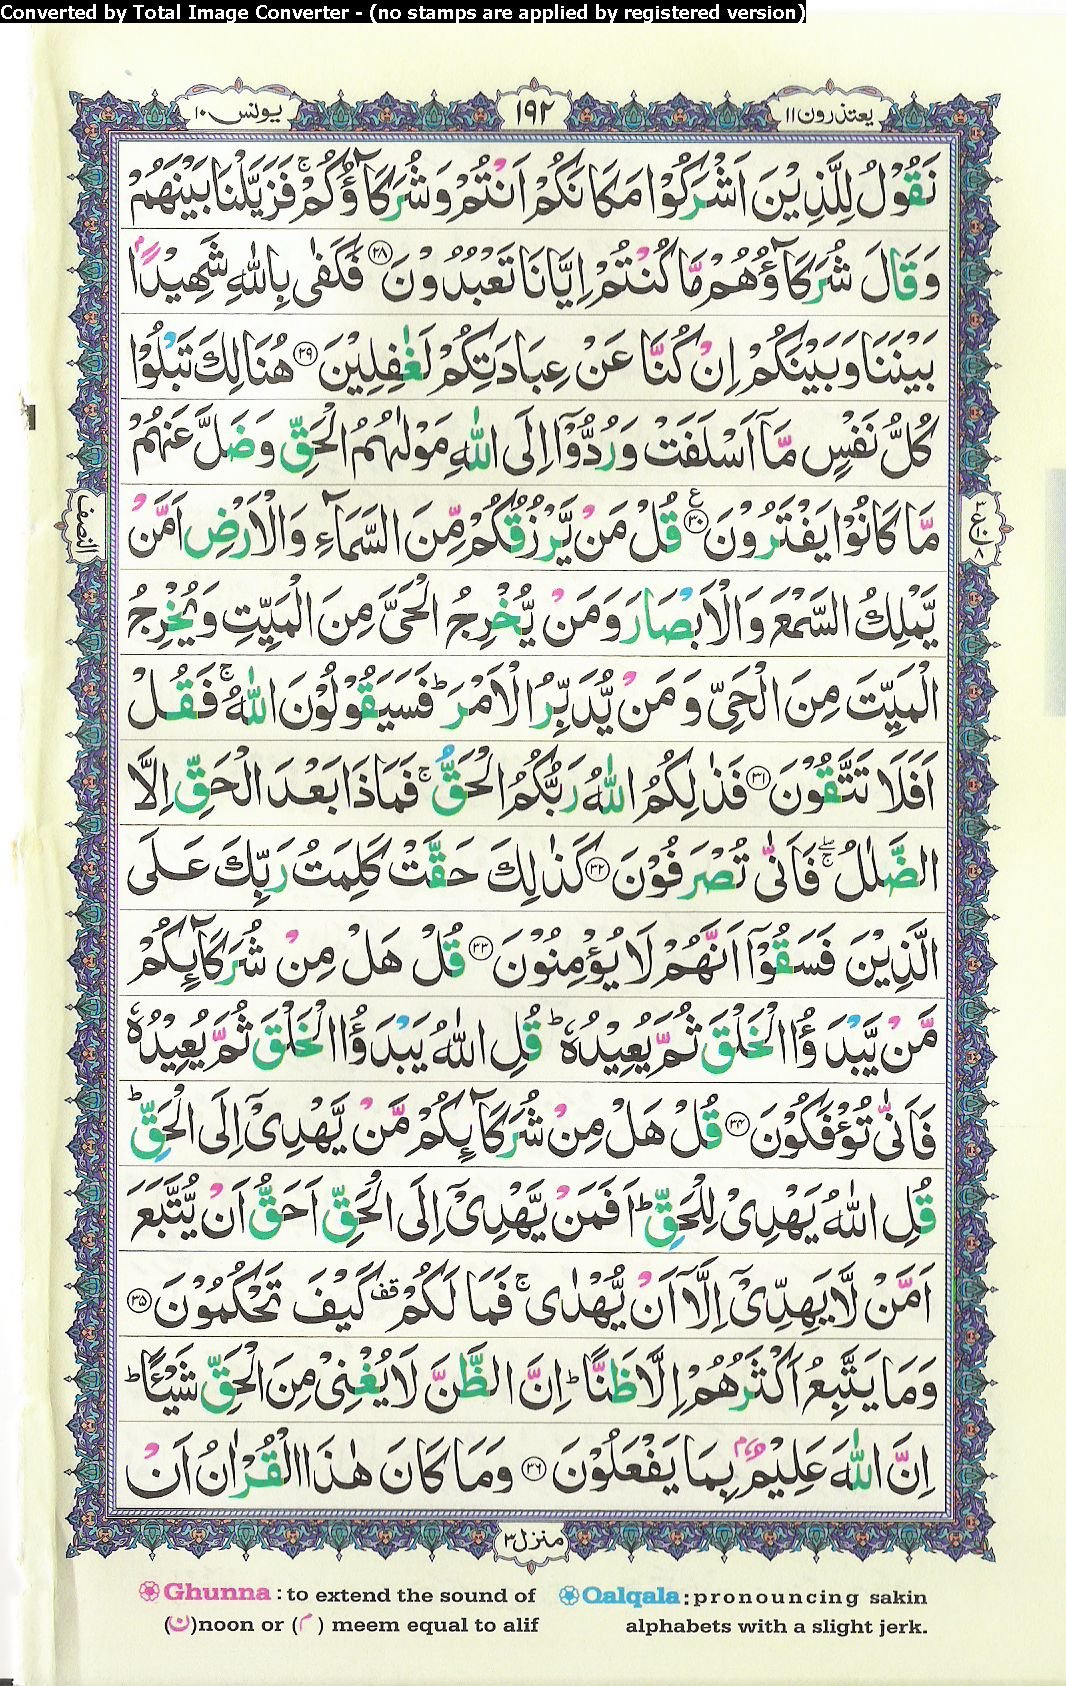 Converted by Total Image Converter - (no stamps are applied by registered version)
یعتذرون ۱۱
۱۹۲
یونس ۱۰
نَقُوْلُ لِلَّذِيْنَ اَشْرَكُوْا مَكَانَكُمْ اَنْتُمْ وَشُرَكَآؤُكُمْ ۚ فَزَيَّلْنَا بَيْنَهُمْ
وَقَالَ شُرَكَآؤُهُمْ مَّا كُنْتُمْ اِيَّانَا تَعْبُدُوْنَ ۝۲۸ فَكَفٰى بِاللّٰهِ شَهِيْدًۢا
بَيْنَنَا وَبَيْنَكُمْ اِنْ كُنَّا عَنْ عِبَادَتِكُمْ لَغٰفِلِيْنَ ۝۲۹ هُنَالِكَ تَبْلُوْا
كُلُّ نَفْسٍ مَّآ اَسْلَفَتْ وَرُدُّوْٓا اِلَى اللّٰهِ مَوْلٰىهُمُ الْحَقِّ وَضَلَّ عَنْهُمْ
مَّا كَانُوْا يَفْتَرُوْنَ ۝۳۰ قُلْ مَنْ يَّرْزُقُكُمْ مِّنَ السَّمَآءِ وَالْاَرْضِ اَمَّنْ
يَّمْلِكُ السَّمْعَ وَالْاَبْصَارَ وَمَنْ يُّخْرِجُ الْحَيَّ مِنَ الْمَيِّتِ وَيُخْرِجُ
الْمَيِّتَ مِنَ الْحَيِّ وَمَنْ يُّدَبِّرُ الْاَمْرَ ؕ فَسَيَقُوْلُوْنَ اللّٰهُ ۚ فَقُلْ
اَفَلَا تَتَّقُوْنَ ۝۳۱ فَذٰلِكُمُ اللّٰهُ رَبُّكُمُ الْحَقُّ ۚ فَمَاذَا بَعْدَ الْحَقِّ اِلَّا
الضَّلٰلُ ۖۚ فَاَنّٰى تُصْرَفُوْنَ ۝۳۲ كَذٰلِكَ حَقَّتْ كَلِمَتُ رَبِّكَ عَلَى
الَّذِيْنَ فَسَقُوْٓا اَنَّهُمْ لَا يُؤْمِنُوْنَ ۝۳۳ قُلْ هَلْ مِنْ شُرَكَآئِكُمْ
مَّنْ يَّبْدَؤُا الْخَلْقَ ثُمَّ يُعِيْدُهٗ ؕ قُلِ اللّٰهُ يَبْدَؤُا الْخَلْقَ ثُمَّ يُعِيْدُهٗ
فَاَنّٰى تُؤْفَكُوْنَ ۝۳۴ قُلْ هَلْ مِنْ شُرَكَآئِكُمْ مَّنْ يَّهْدِيْٓ اِلَى الْحَقِّ ؕ
قُلِ اللّٰهُ يَهْدِيْ لِلْحَقِّ ؕ اَفَمَنْ يَّهْدِيْٓ اِلَى الْحَقِّ اَحَقُّ اَنْ يُّتَّبَعَ
اَمَّنْ لَّا يَهِدِّيْٓ اِلَّآ اَنْ يُّهْدٰى ۚ فَمَا لَكُمْ قف كَيْفَ تَحْكُمُوْنَ ۝۳۵
وَمَا يَتَّبِعُ اَكْثَرُهُمْ اِلَّا ظَنًّا ؕ اِنَّ الظَّنَّ لَا يُغْنِيْ مِنَ الْحَقِّ شَيْئًا ؕ
اِنَّ اللّٰهَ عَلِيْمٌۢ بِمَا يَفْعَلُوْنَ ۝۳۶ وَمَا كَانَ هٰذَا الْقُرْاٰنُ اَنْ
النصف
۳
ع ۱۰
۸
منزل ۳
Ghunna : to extend the sound of
(ن)noon or (م) meem equal to alif
Qalqala : pronouncing sakin
alphabets with a slight jerk.